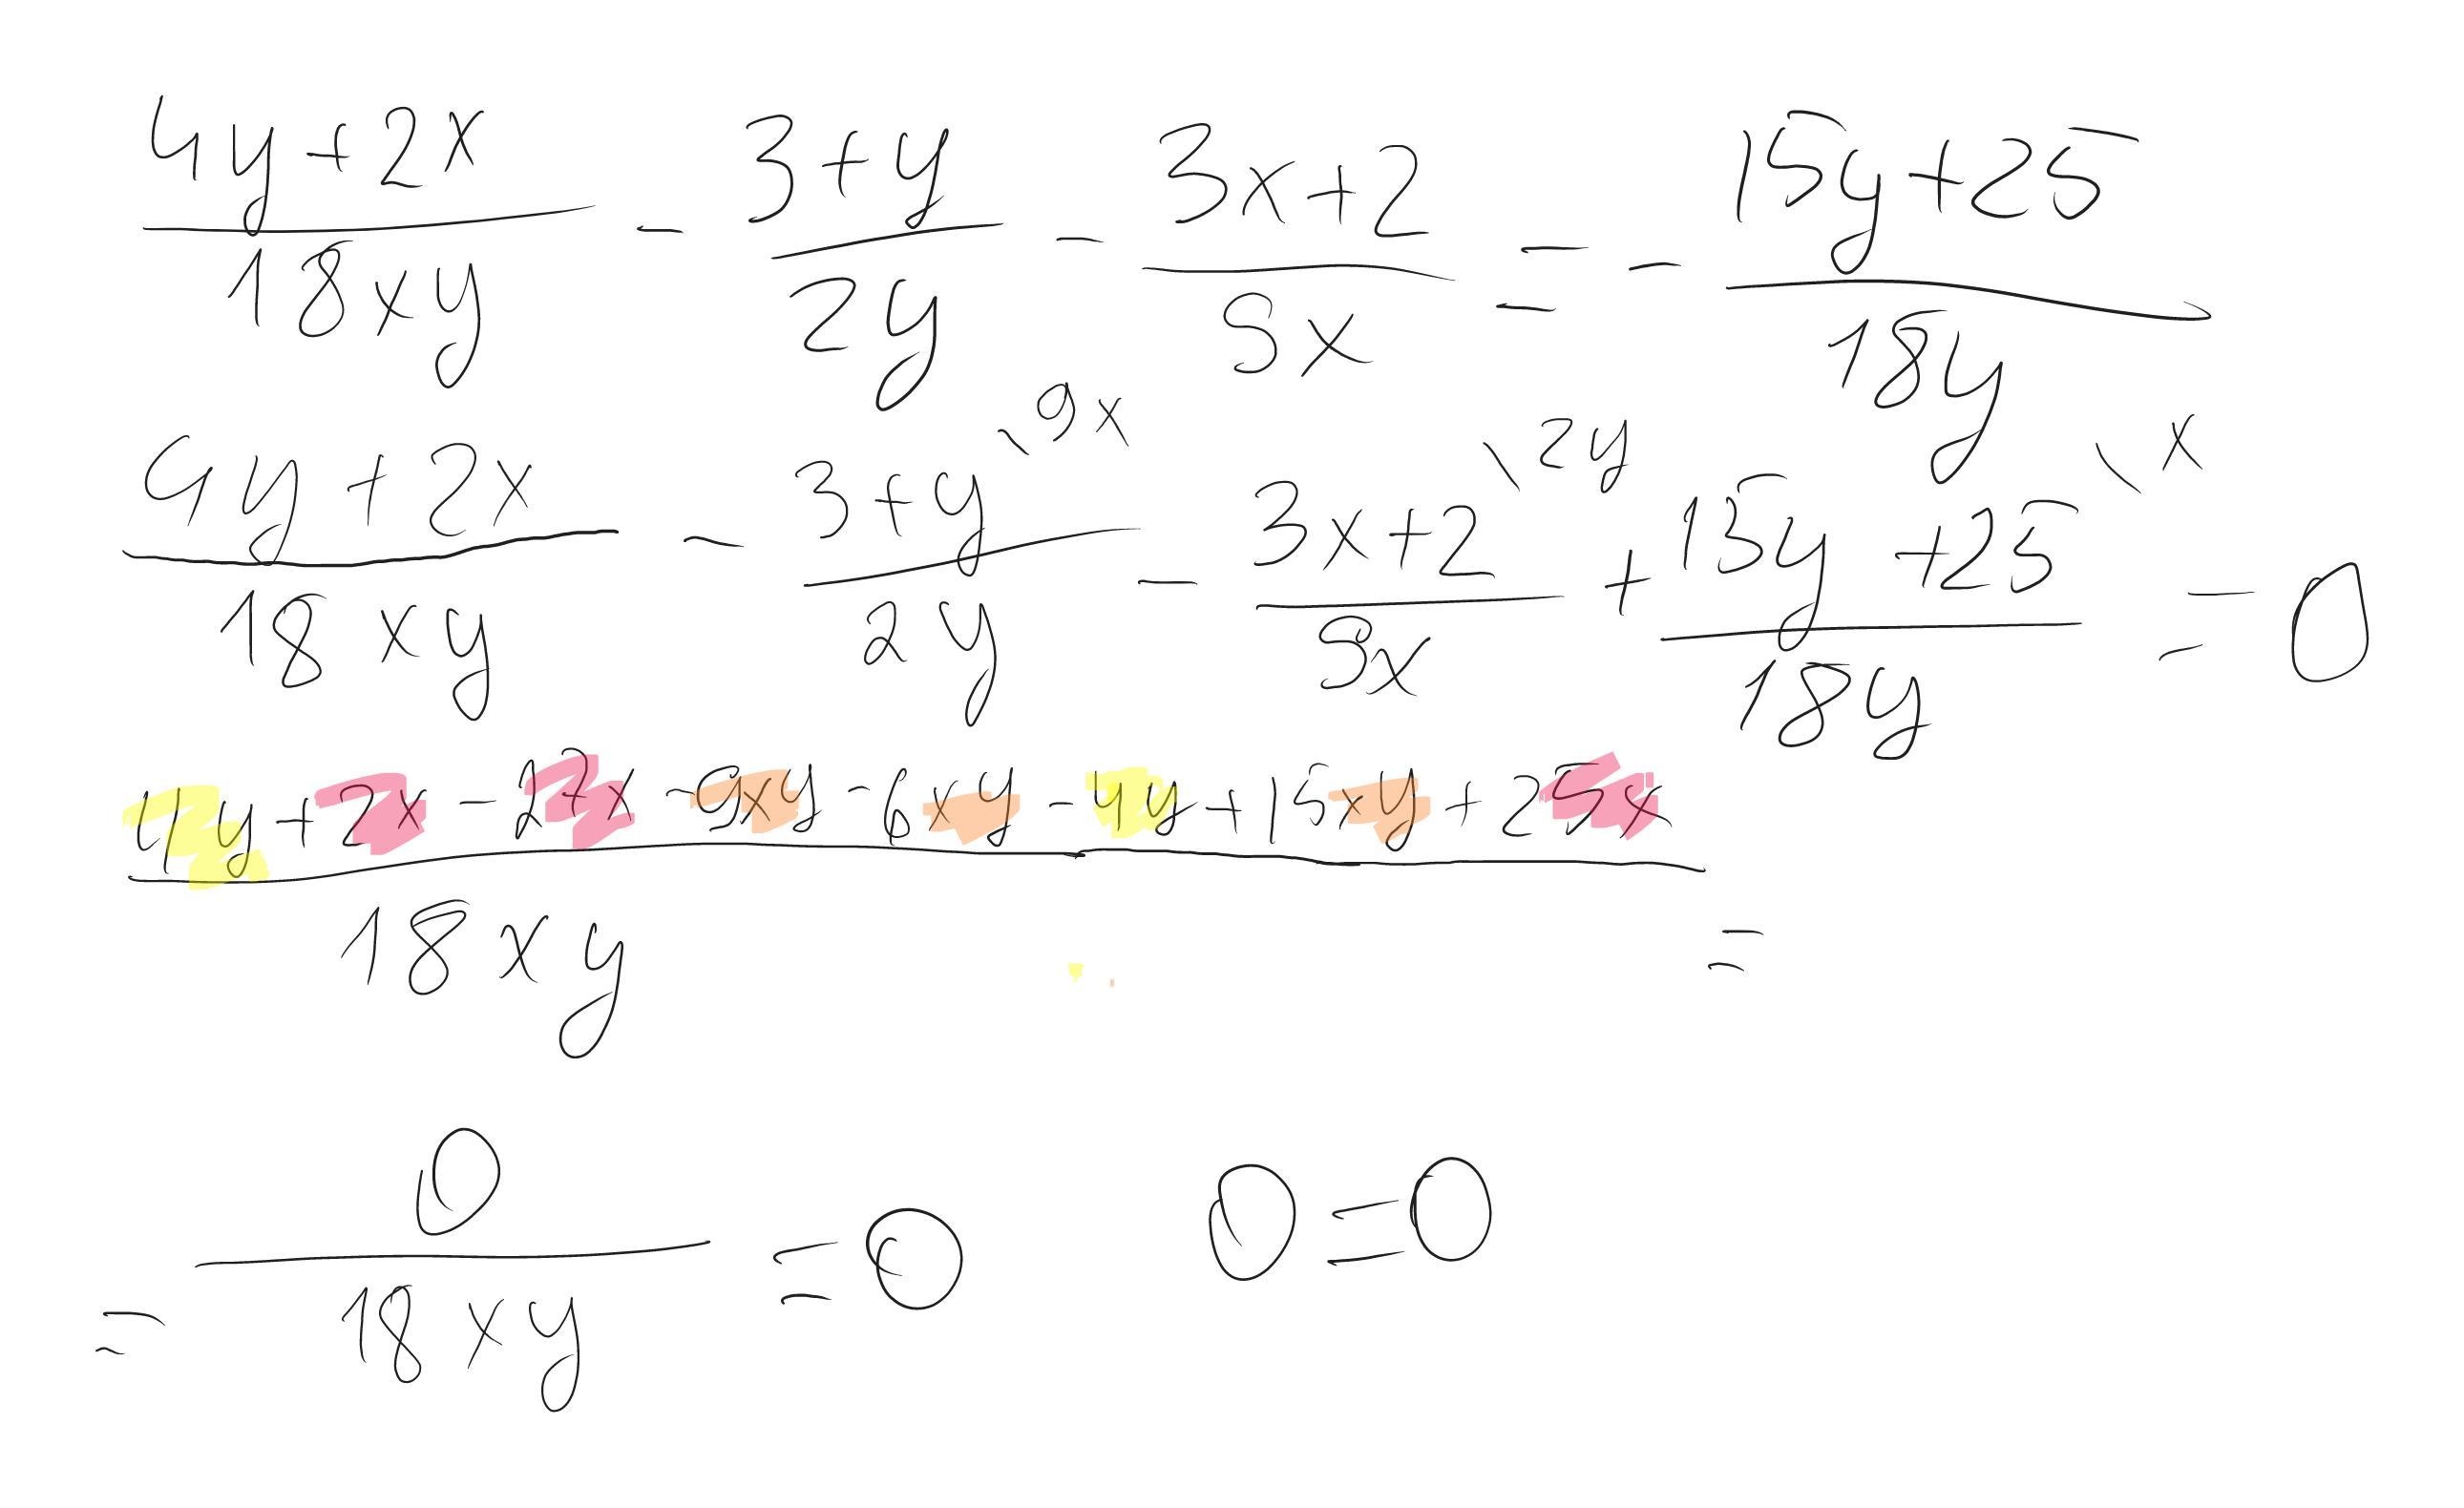 (4y+2x)/(18xy) - (3+y)/(2y) - (3x+2)/(9x) = - (15y+25)/(18y)
(4y+2x)/(18xy) - (3+y)/(2y) \9x - (3x+2)/(9x) \2y + (15y+25)/(18y) \x = 0
(4y+2x-27x-9xy-6xy-4y+15xy+25x)/(18xy) =
= 0/(18xy) = 0 0=0